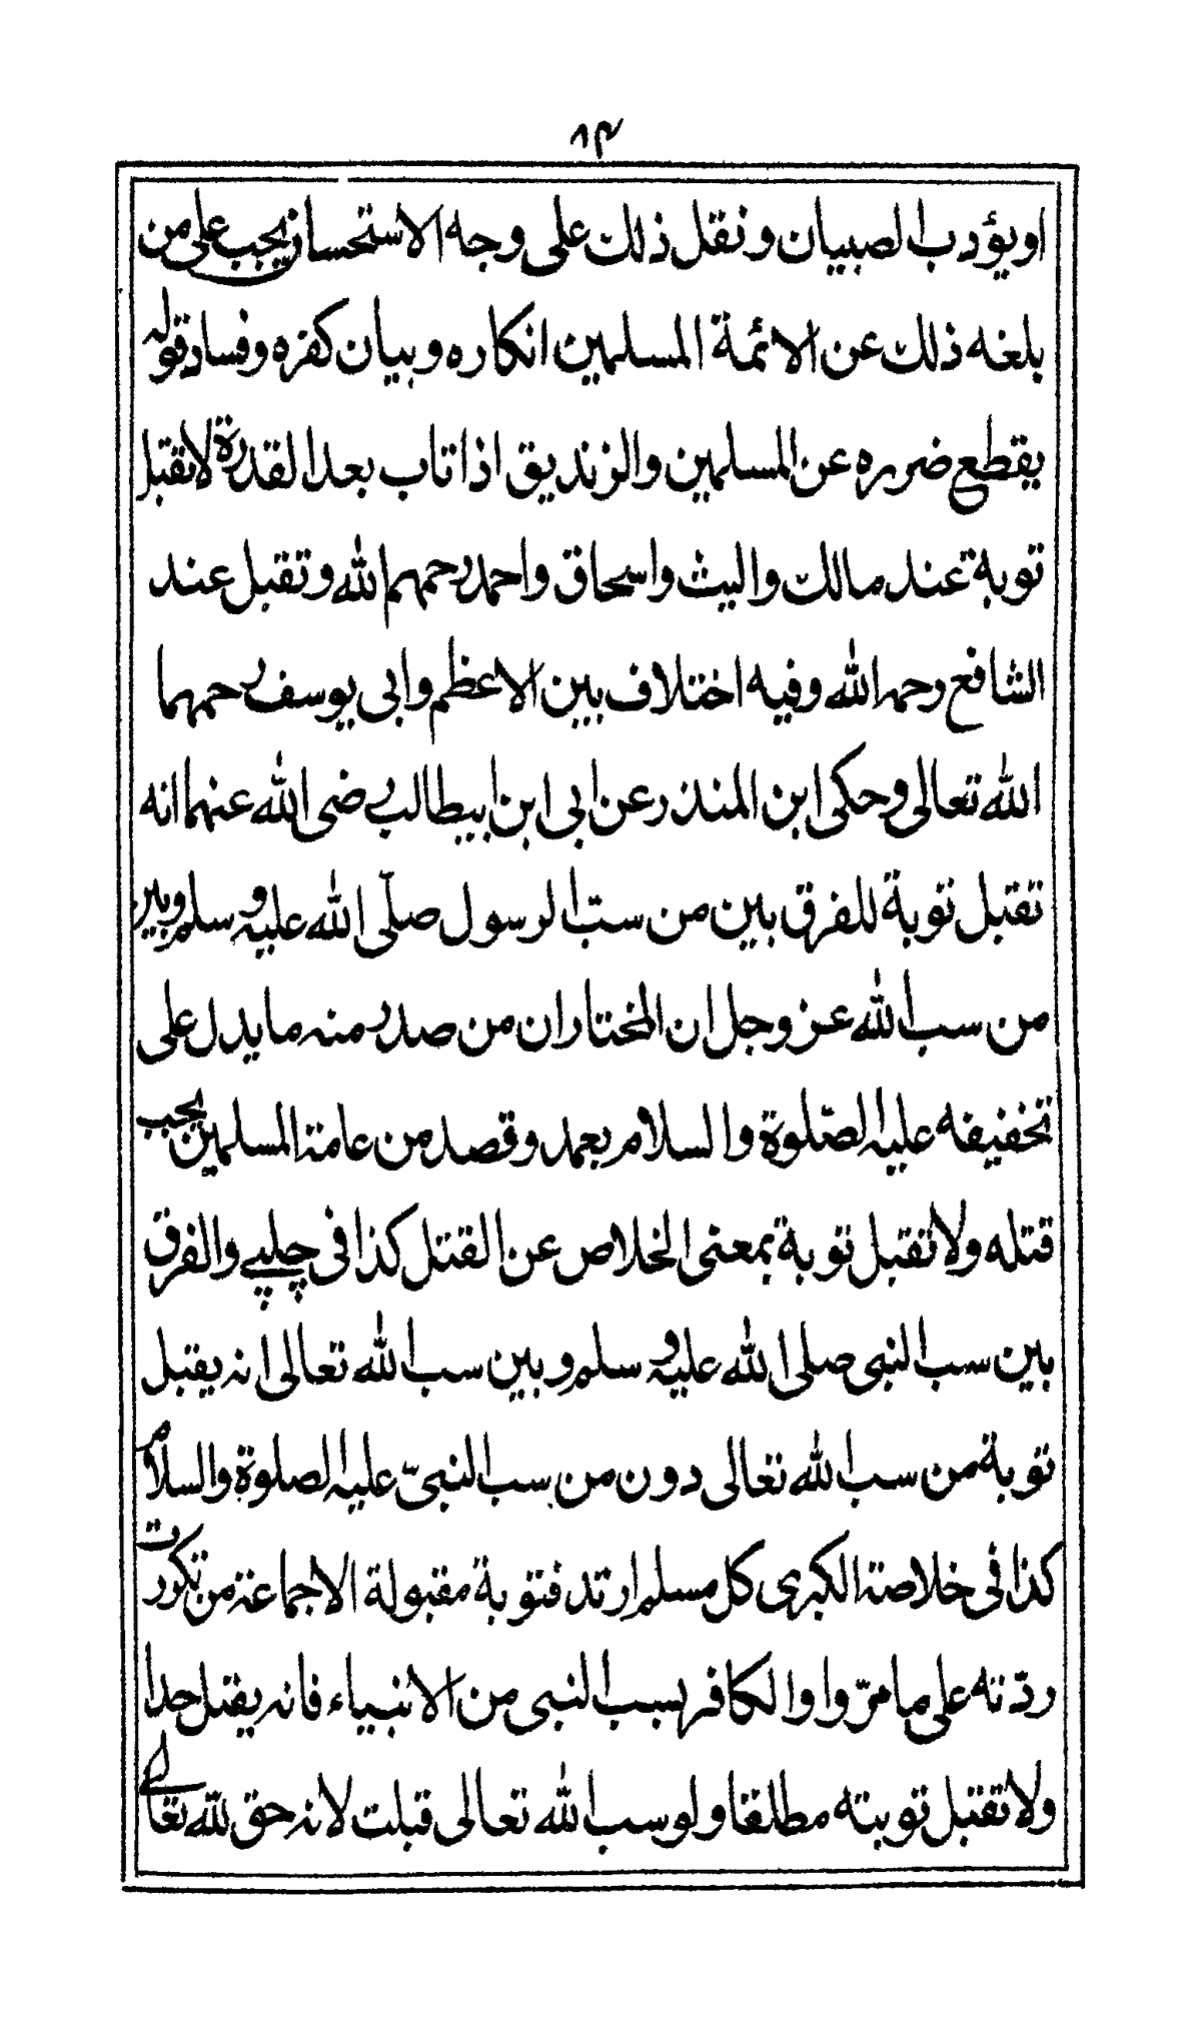 ٨٣
او يؤدب الصبيان ونقل ذلك على وجه الاستحسان يجب على من
بلغه ذلك عن الائمة المسلمين انكاره وبيان كفره وفساد قوله
يقطع ضرره عن المسلمين والزنديق اذا تاب بعد القدرة لا تقبل
توبة عند مالك واليث واسحاق واحمد رحمهم الله وتقبل عند
الشافع رحمه الله وفيه اختلاف بين الاعظم وابى يوسف رحمهما
الله تعالى وحكى ابن المنذر عن ابى ابن ابيطالب رضى الله عنهما انه
تقبل توبة للفرق بين من سبّ الرسول صلّى الله عليه وسلم وبين
من سب الله عز وجل ان المختار ان من صدر منه ما يدل على
تخفيفه عليه الصّلوة والسلام بعمد وقصد من عامة المسلمين يجب
قتله ولا تقبل توبة بمعنى الخلاص عن القتل كذا فى چلپے والفرق
بين سب النبى صلى الله عليه وسلم وبين سب الله تعالى انه يقبل
توبة من سب الله تعالى دون من سب النبىّ عليه الصلوة والسلام
كذا فى خلاصة الكبرى كل مسلم ارتد فتوبة مقبولة الاجماعة من تكررت
ردّته على ما مرّ وا والكافر بسب النبى من الانبياء فانه يقتل حدا
ولا تقبل توبته مطلقا ولو سب الله تعالى قبلت لانه حق لله تعالى